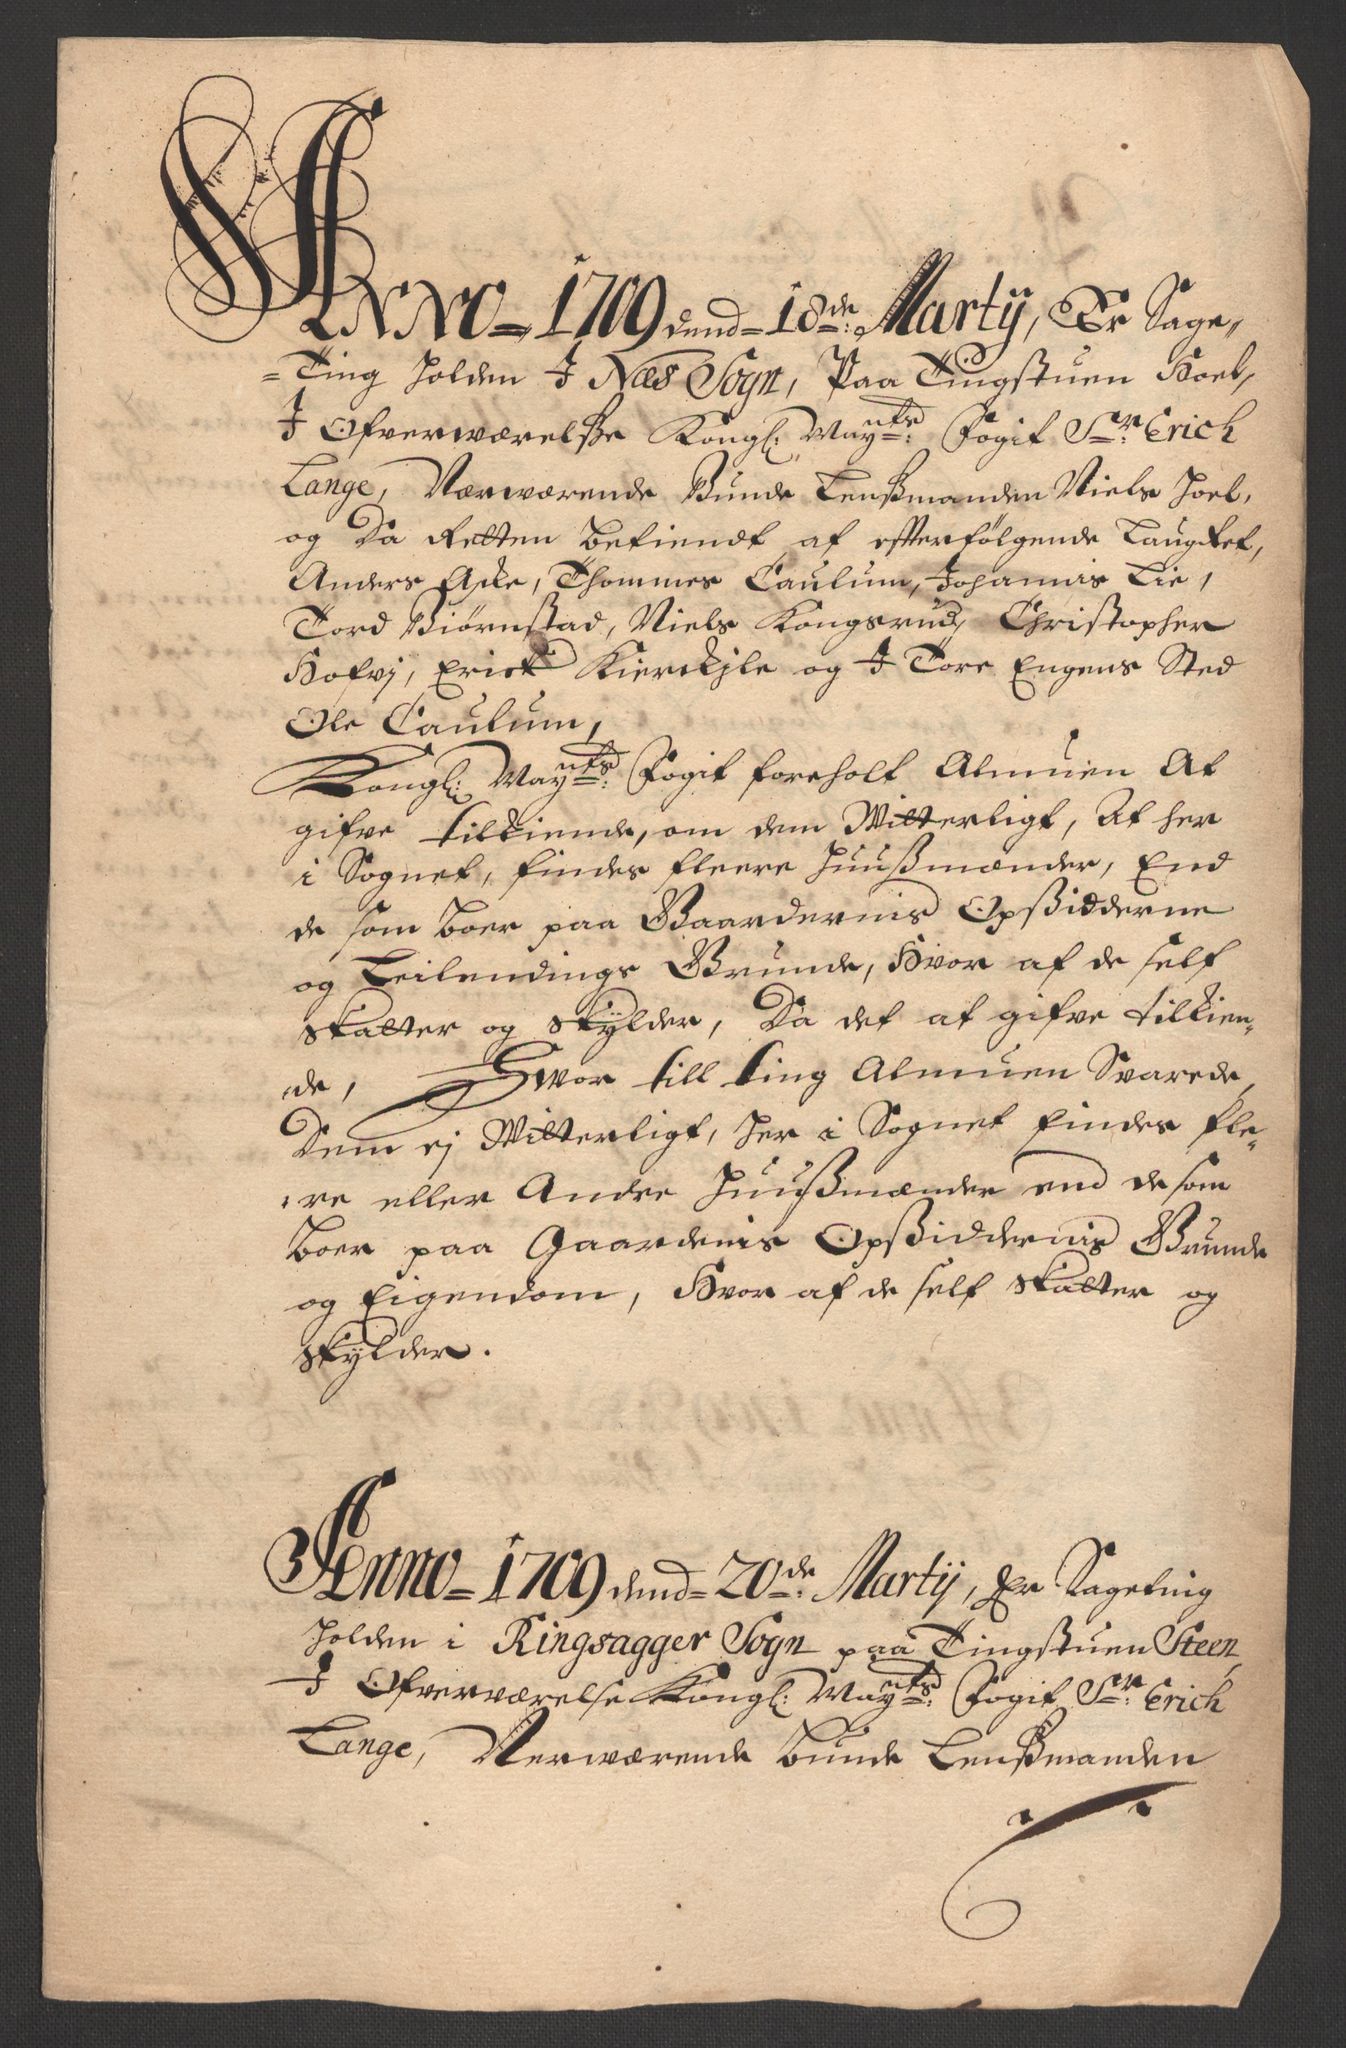 ANNO 1709 dend 18de: Martij, Er Sage-
-Ting holden J Næs Sogn, Paa Tingstuen Hoel,
J Ofverwærelsse Kongl: May:nts: Fogit Sr: Erich
Lange, Nærwærende Bunde Lenssmanden Niels Hoel,
og Da Retten betiendt af effterfølgende Laugret,
Anders Aske, Thommes Caulum, Johannis Lie,
Tord Biørnstad, Niels Kongsrud, Christopher
Hofvj, Erick Kierckjle og J Tore Engens Sted
Ole Caulum,
Kongl: May:nts: Fogit foreholt Almuen At
gifve tilkiende, om dem Witterligt, At her
i Sognet, findes fleere Huussmænder, End
de som boer paa Gaardernis Opssidderne
og Leilendings Grunde, Hvor af de self
skatter og skylder, Da det at gifve tilkien-
de, Hwor till ting Almuen Svarede,
Dem ej Witterligt, her i Sognet findes fle-
re eller Andre Huussmænder end de som
boer paa Gaardenis Opssiddernis Grunde
og Eigendom, Hvor af de self skatter og
skylder.
Anno 1709 dend 20de: Martij, Er Sageting
holden i Ringsagger Sogn paa Tingstuen Steen,
J Ofverværelse Kongl: May:nts: Fogit Sr: Erich
Lange, Nerwærende bunde Lenssmanden